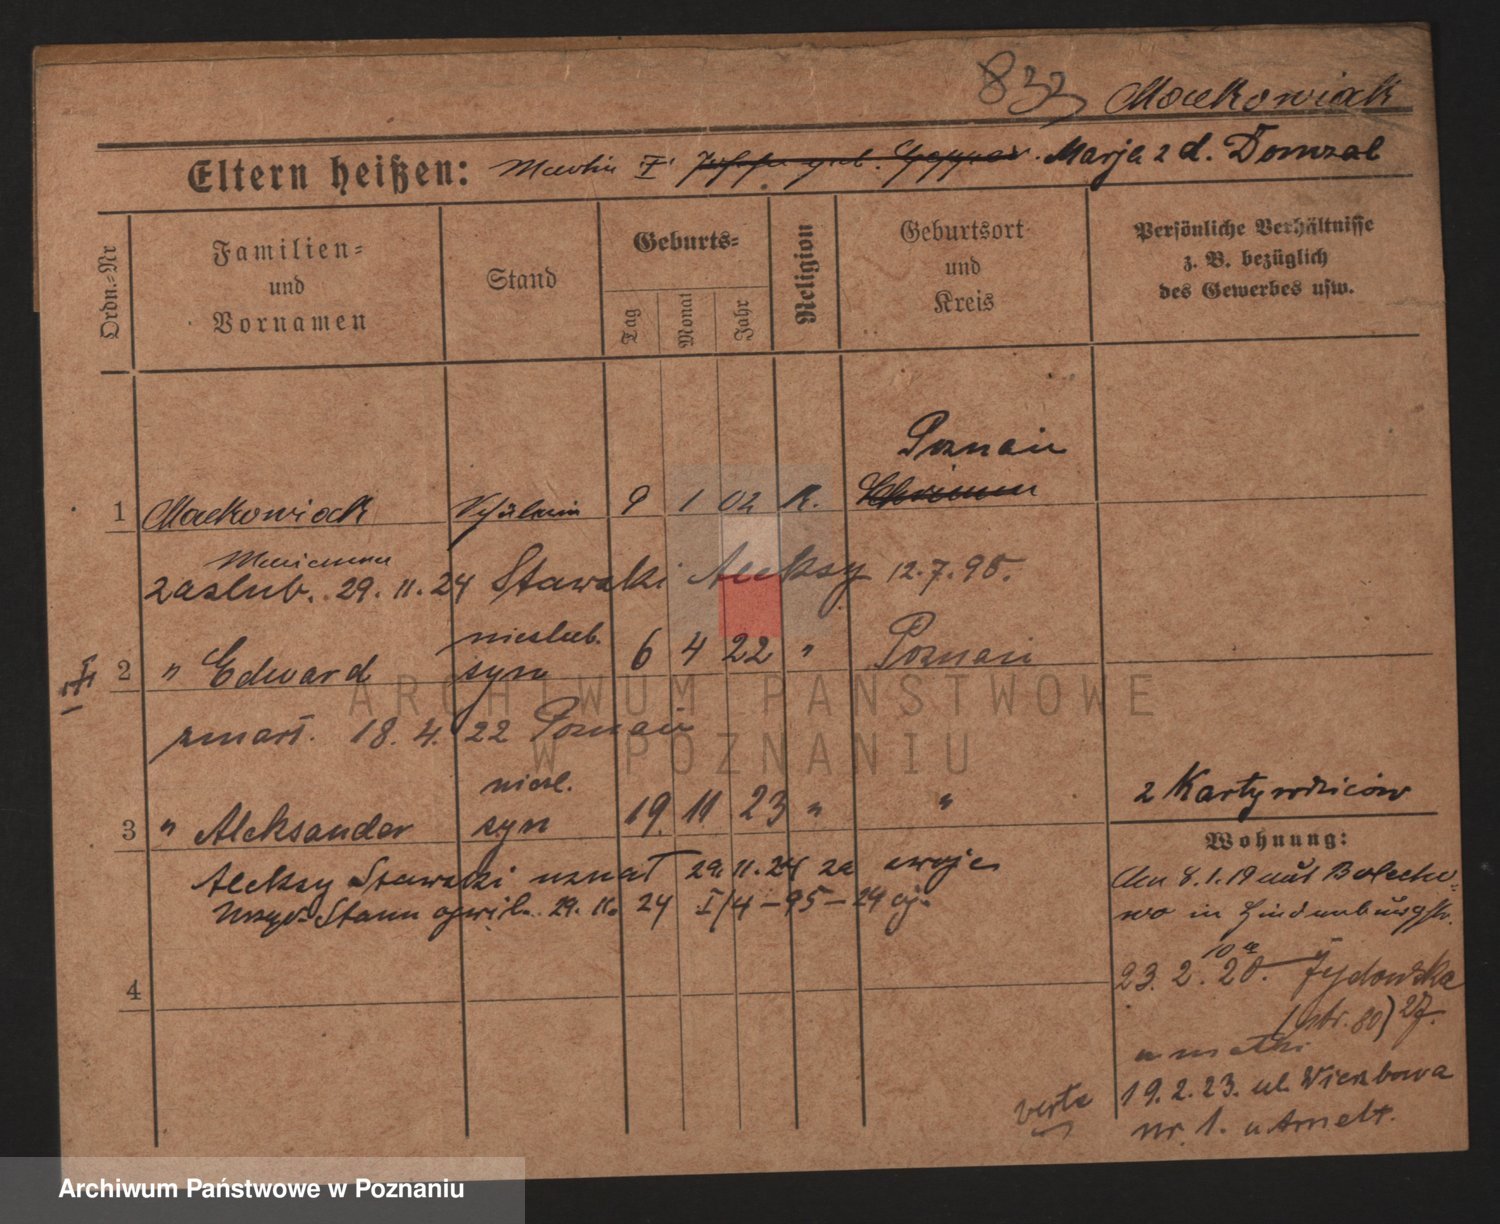 833 Maćkowiak
Eltern heißen: Martin Marja z d. Domzal
Ordn.-Nr
Familien-
und
Vornamen
Stand
Geburts-
Tag
Monat
Jahr
Religion
Geburtsort
und
Kreis
Persönliche Verhältnisse
z. B. bezüglich
des Gewerbes usw.
Poznań
1 Maćkowiak 9 1 02 K.
Marianna
zaslub. 29.11.24 Stawski Aleksy 12.7.95.
nieslub.
2 " Edward syn 6 4 22 " Poznań
zmarł. 18. 4. 22 Poznań
niesl.
3 " Aleksander syn 19. 11 23 " "
2 Karty rodziców
Wohnung:
Aleksy Stawski uznał 29.11.24 za swoje
Stanu cywil. 29. 11. 24 I/4-95-24
4
Am 8.1.19 aus Bolecho-
wo in Hindenburgstr.
23. 2. 20. Żydowska
str. 80) 27.
u matki
19.2.23. ul. Wierzbowa
nr. 1. u Arnelt.
verte
ARCHIWUM PAŃSTWOWE
W POZNANIU
Archiwum Państwowe w Poznaniu